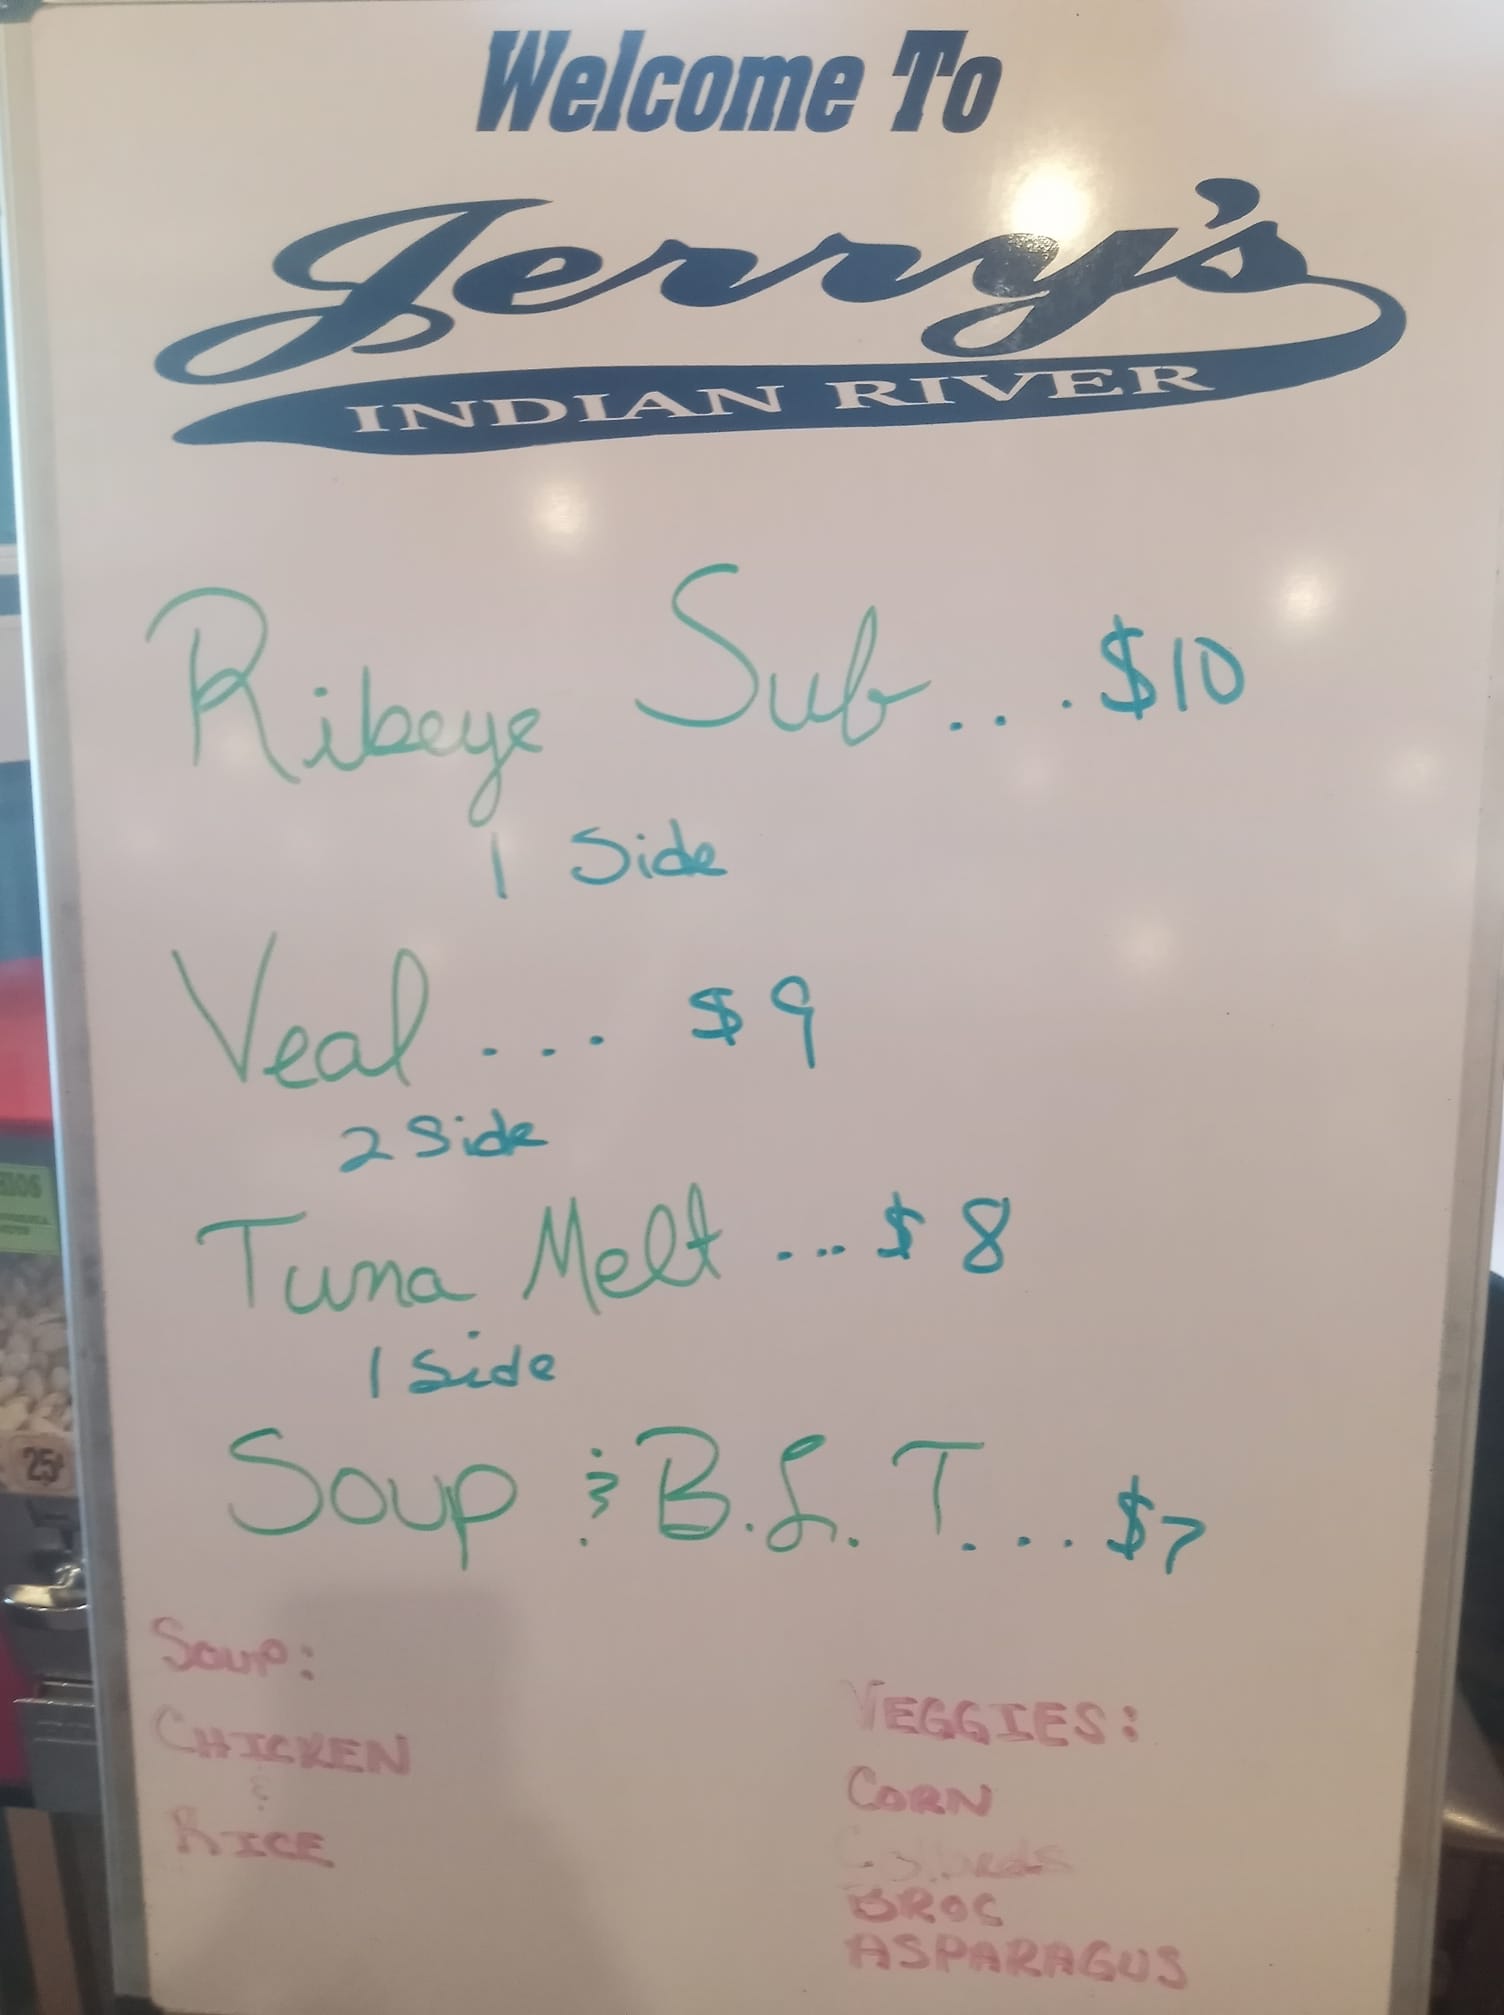 Welcome To
Jerry's
INDIAN RIVER
Ribeye Sub... $10
1 Side
Veal... $9
2 Side
Tuna Melt... $8
1 Side
Soup & B.L.T... $7
Soup:
CHICKEN
&
RICE
VEGGIES:
CORN
BROC
ASPARAGUS
25¢